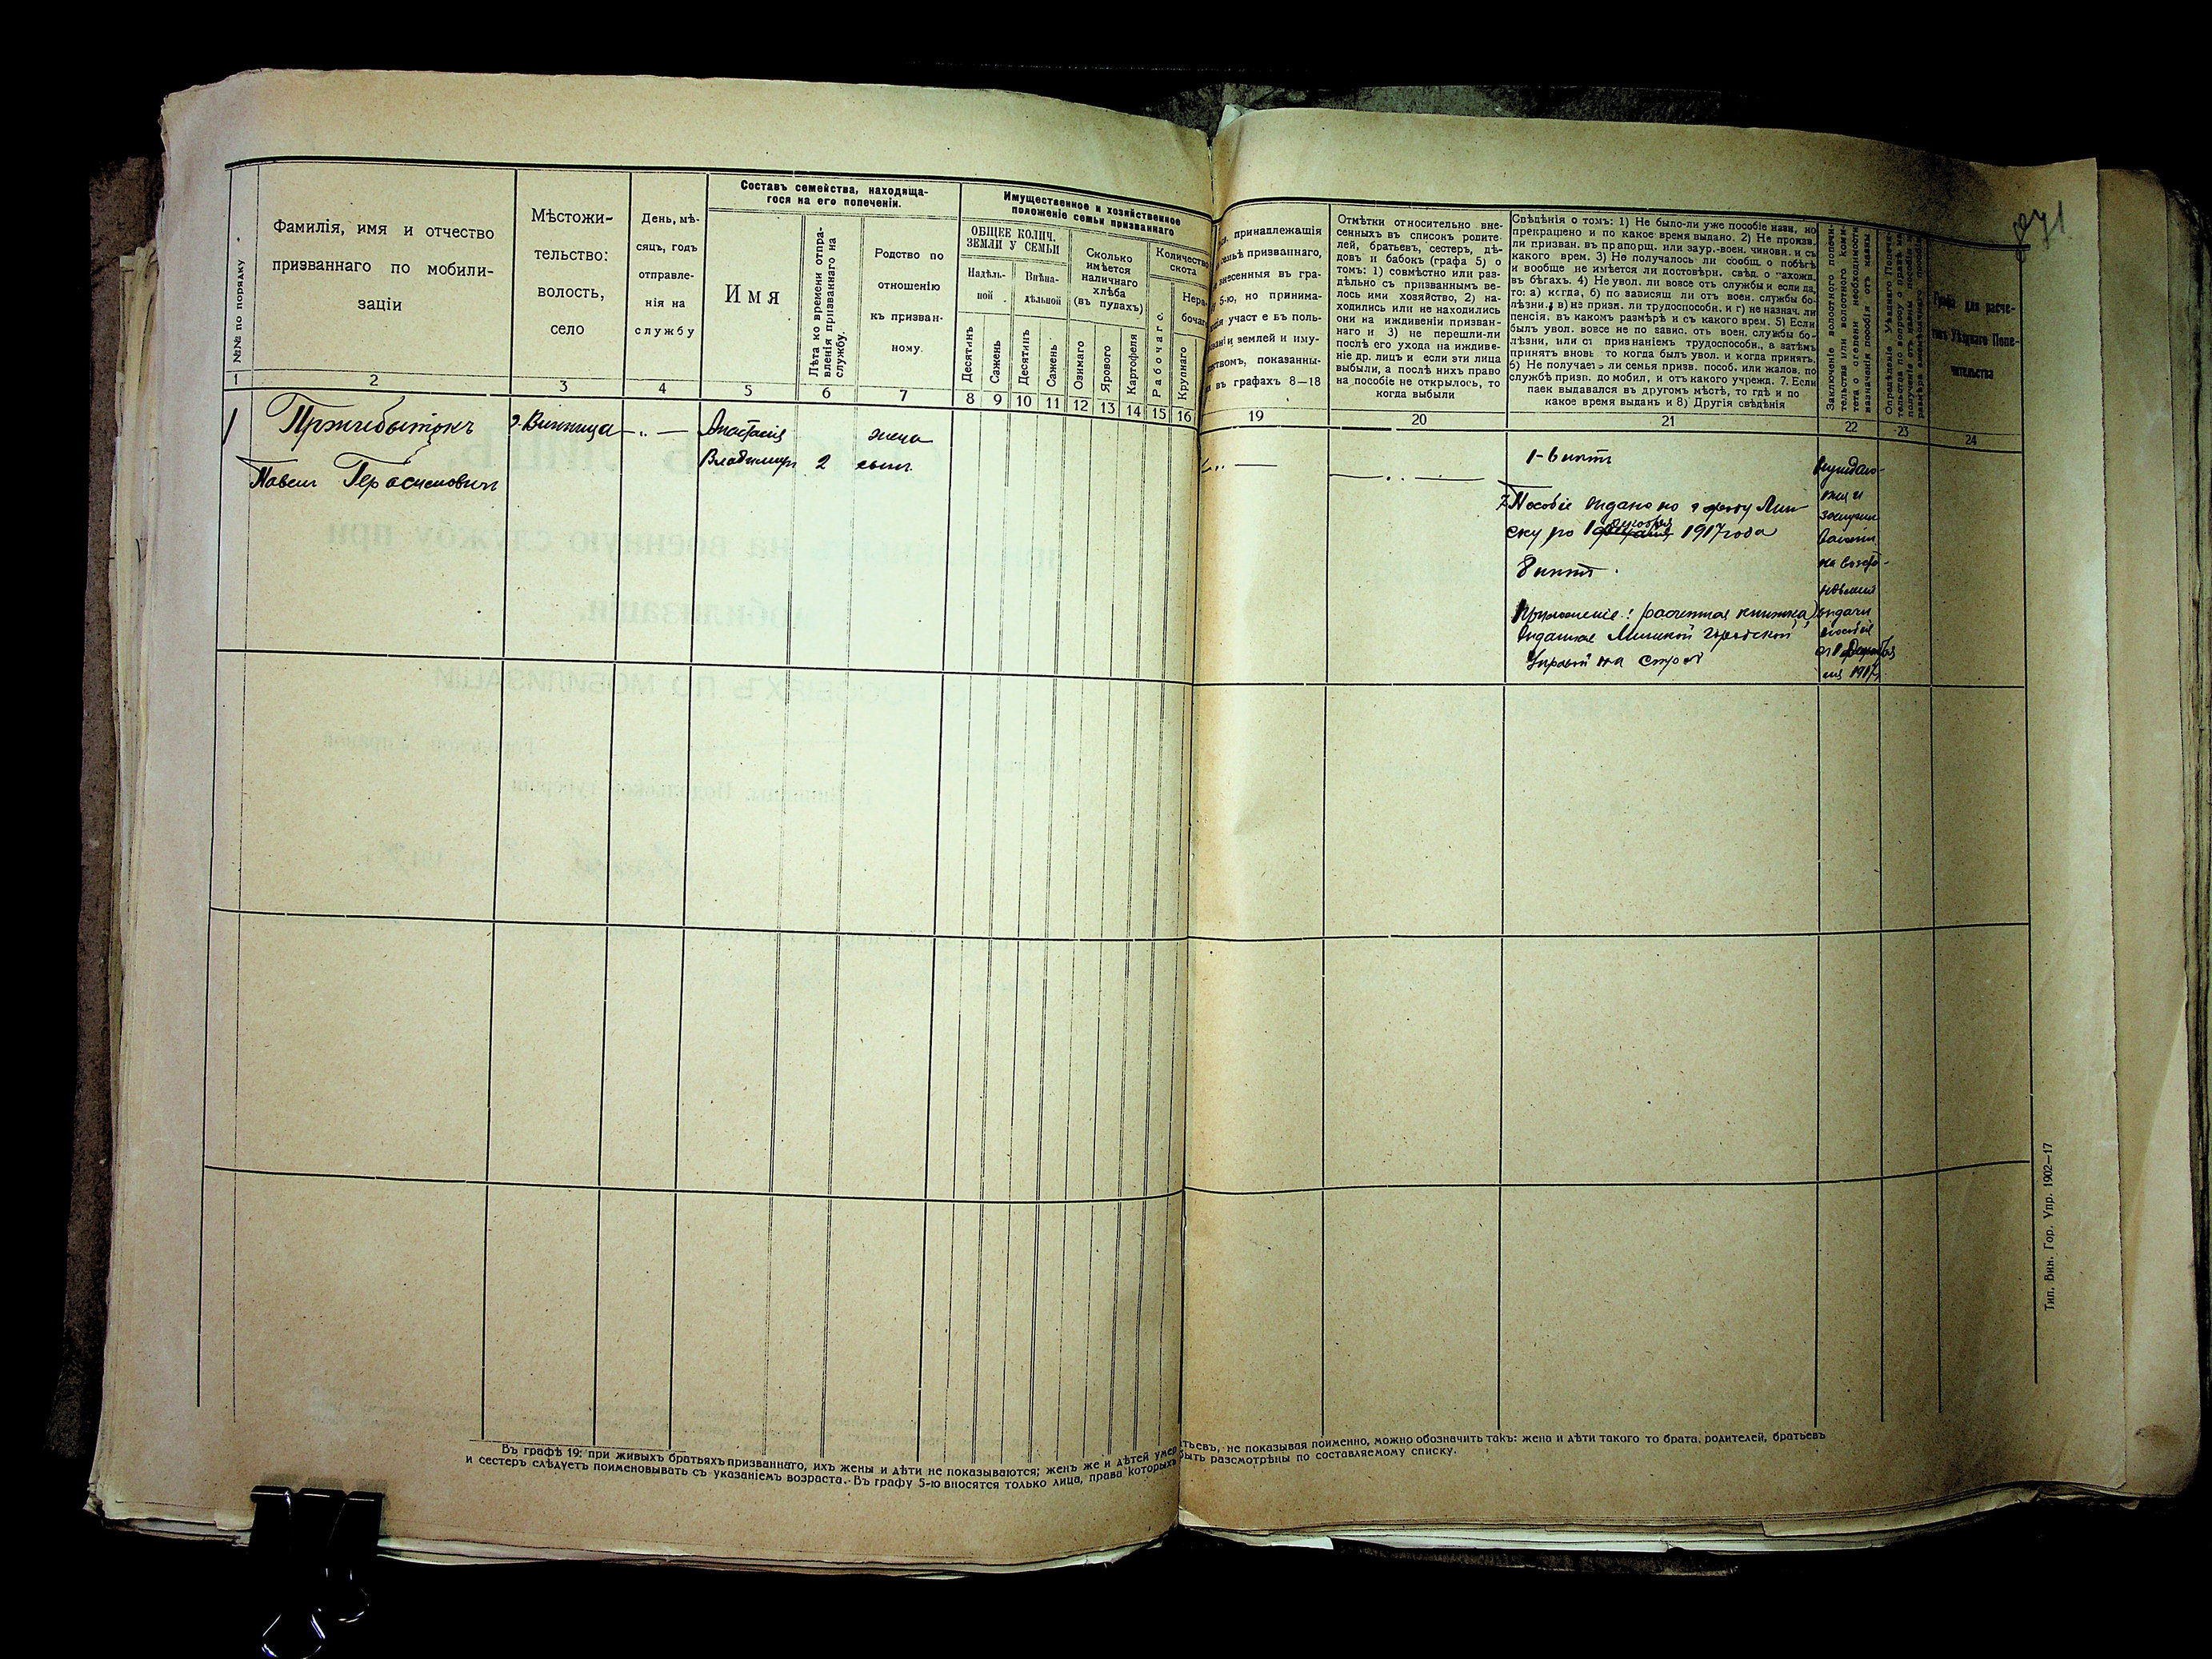 №№ по порядку
Фамилія, имя и отчество
призваннаго по мобили-
заціи
Мѣстожи-
тельство:
волость,
село
День, мѣ-
сяцъ, годъ
отправле-
нія на
службу
Составъ семейства, находяща-
гося на его попеченіи.
Имя
Лѣта ко времени отпра-
вленія призваннаго на
службу.
Родство по
отношенію
къ призван-
ному.
Имущественное и хозяйственное
положеніе семьи призваннаго
ОБЩЕЕ КОЛИЧ.
ЗЕМЛИ У СЕМЬИ
Надѣль-
ной
Внѣна-
дѣльной
Десятинъ
Сажень
Десятинъ
Сажень
Сколько
имѣется
наличнаго
хлѣба
(въ пудахъ)
Озимаго
Ярового
Картофеля
Количество
скота
Рабочаго.
Нера-
бочаг
Крупнаго
принадлежашія
семьѣ призваннаго,
внесенныя въ гра-
5-ю, но принима-
участ е въ поль-
землей и иму-
показанны-
въ графахъ 8—18
Отмѣтки относительно вне-
сенныхъ въ списокъ родите-
лей, братьевъ, сестеръ, дѣ-
довъ и бабокъ (графа 5) о
томъ: 1) совмѣстно или раз-
дѣльно съ призваннымъ ве-
лось ими хозяйство, 2) на-
ходились или не находились
они на иждивеніи призван-
наго и 3) не перешли-ли
послѣ его ухода на иждиве-
ніе др. лицъ и если эти лица
выбыли, а послѣ нихъ право
на пособіе не открылось, то
когда выбыли
Свѣдѣнія о томъ: 1) Не было-ли уже пособіе назн, но
прекращено и по какое время выдано. 2) Не произв.
ли призван. въ прапорщ. или заур.-воен. чиновн. и съ
какого врем. 3) Не получалось ли сообщ. о побѣгѣ
и вообще не имѣется ли достовѣрн. свѣд. о нахожд.
въ бѣгахъ. 4) Не увол. ли вовсе отъ службы и если да,
то: а) когда, б) по зависящ ли отъ воен. службы бо-
лѣзни, в) не призн. ли трудоспособн. и г) не назнач. ли
пенсія, въ какомъ размѣрѣ и съ какого врем. 5) Если
былъ увол. вовсе не по завис. отъ воен. службы бо-
лѣзни, или съ признаніемъ трудоспособн., а затѣмъ
принятъ вновь то когда былъ увол. и когда принятъ.
6) Не получаетъ ли семья призв. пособ. или жалов. по
службѣ призв. до мобил, и отъ какого учрежд. 7. Если
паек выдавался въ другомъ мѣстѣ, то гдѣ и по
какое время выданъ и 8) Другія свѣдѣнія
Заключеніе волостного попечи-
тельства или волостного коми-
тета о степени необходимости
назначенія пособія отъ казны
Опредѣленіе Уѣзднаго Попечи-
тельства по вопросу о правѣ на
полученіе отъ казны пособія и
размѣрѣ ежемѣсячнаго пособія
Графа для расче-
товъ Уѣзднаго Попе-
чительства
71
1 2 3 4 5 6 7 8 9 10 11 12 13 14 15 16 19 20 21 22 23 24
1 Пржибытокъ г. Винница —"— Анастасія жена
Павелъ Герасимовичъ Владимиръ 2 сынъ
1-6 нѣтъ
7 Пособіе выдано по городу Мин-
ску по 1 1917 года
8 нѣтъ.
Приложеніе: (расчетная книжка)
выданная Минской городской
Управой на
выдачи
пособія
1917
Тип. Вин. Гор. Упр. 1902—17
Въ графѣ 19: при живыхъ братьяхъ призваннаго, ихъ жены и дѣти не показываются; женъ же и дѣтей умер тьевъ, не показывая поименно, можно обозначить такъ: жена и дѣти такого то брата, родителей, братьевъ
и сестеръ слѣдуетъ поименовывать съ указаніемъ возраста.-Въ графу 5-ю вносятся только лица, права которыхъ быть разсмотрѣны по составляемому списку.